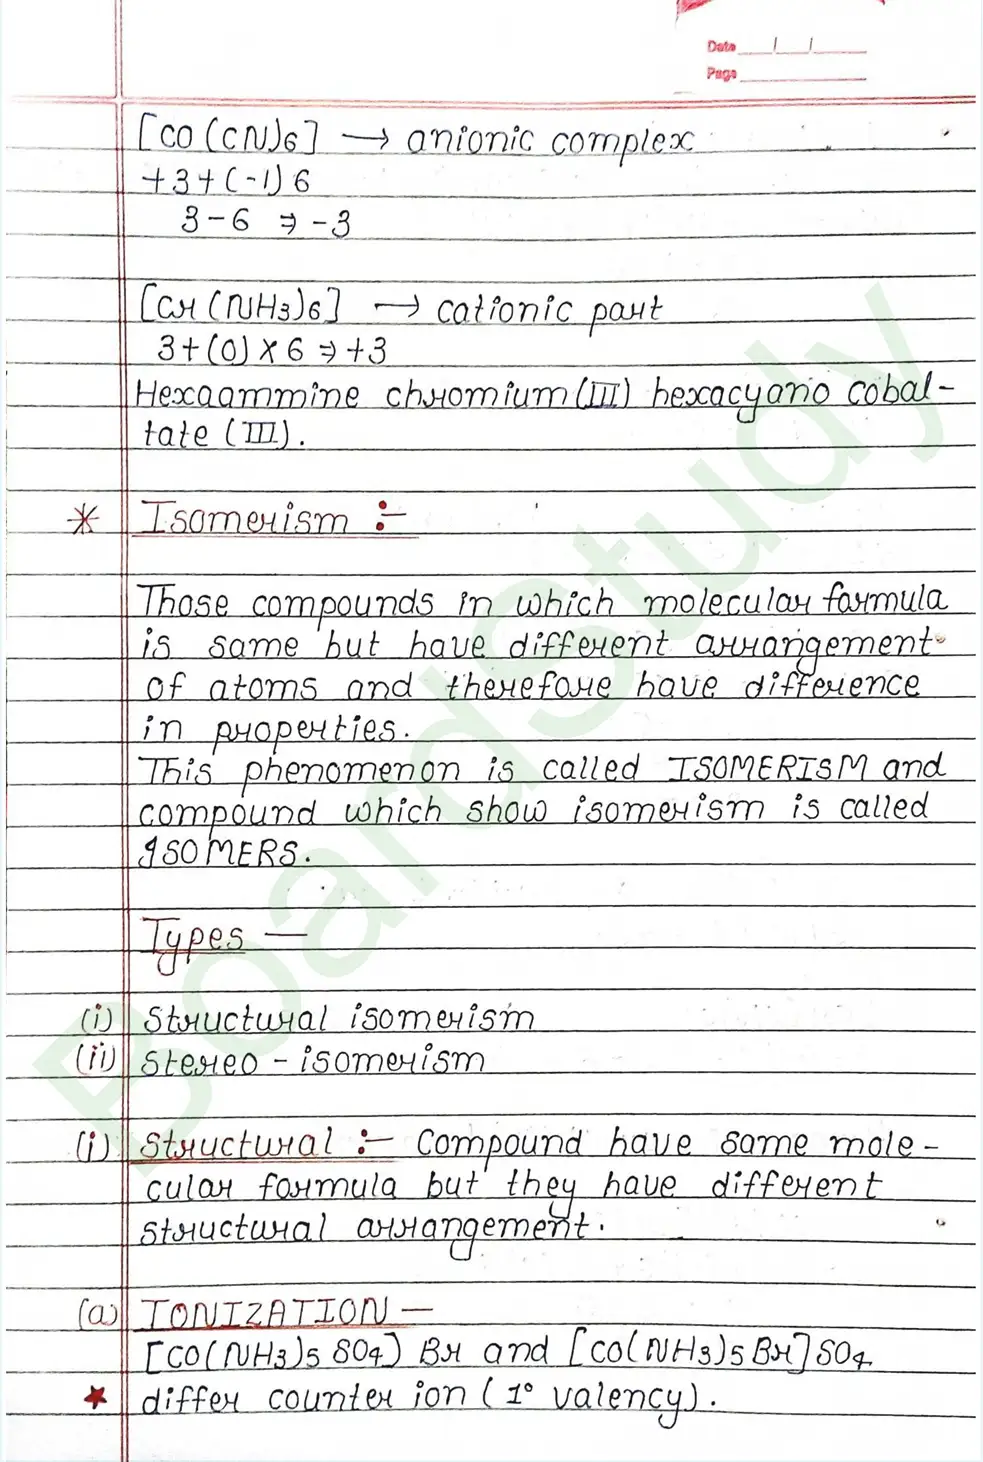 Date / /
Page
[CO(CN)6] → anionic complex
+3+(-1)6
3-6 ⇒ -3
[Cr(NH3)6] → cationic part
3+(0)×6⇒+3
Hexaammine chromium(III) hexacyano cobal-
tate (III).
* Isomerism :-
Those compounds in which molecular formula
is same but have different arrangement
of atoms and therefore have difference
in properties.
This phenomenon is called ISOMERISM and
compound which show isomerism is called
ISOMERS.
Types —
(i) Structural isomerism
(ii) Stereo - isomerism
(i) Structural :- Compound have same mole-
cular formula but they have different
structural arrangement.
(a) IONIZATION —
[CO(NH3)5 SO4) Br and [CO(NH3)5Br]SO4
★ differ counter ion (1° valency).
BoardStudy